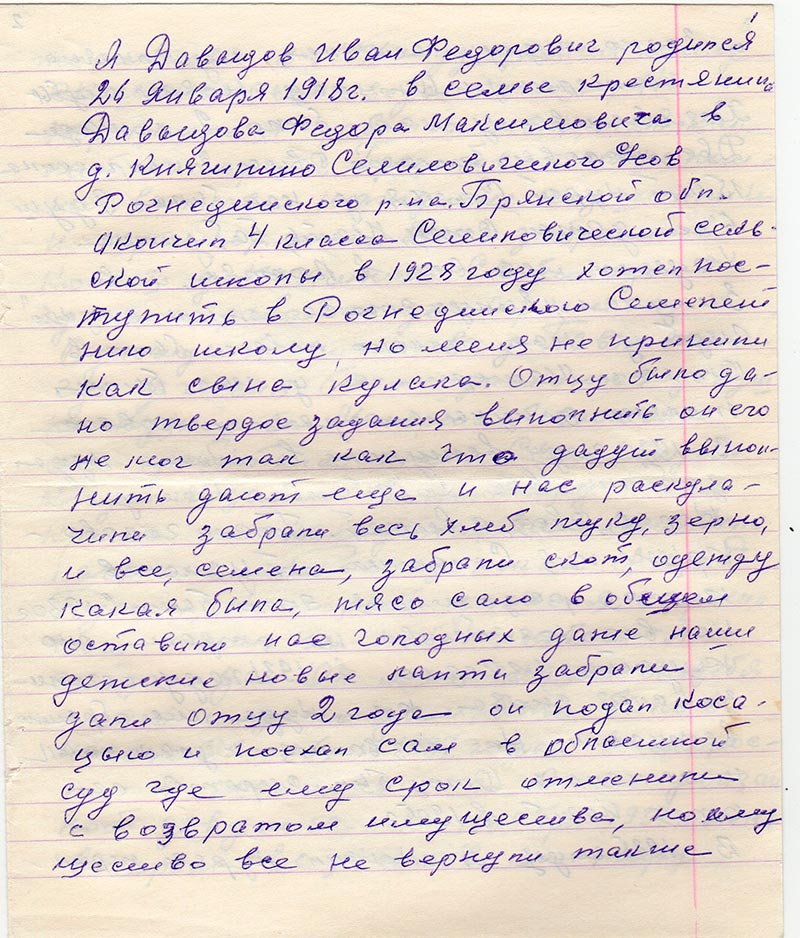 1
Я Давыдов Иван Федорович родился
26 Января 1918г. в семье крестянина
Давыдова Федора Максимовича в
д. Княгинино Селиловического
Рогнединского р-на. Брянской обл.
Окончил 4 класса Селиловической сель-
ской школы в 1928 году хотел пос-
тупить в Рогнединского
нию школу, но меня не приняли
как сына кулака. Отцу было да-
но твердое задания выполнить он его
не мог так как что дадут выпол-
нить дают еще и нас раскула-
чили забрали весь хлеб муку, зерно,
и все, семена, забрали скот, одежду
какая была, мясо сало в общем
оставили нас голодных даже наши
детские новые лапти забрали
дали Отцу 2 года он подал каса-
цыю и поехал сам в областной
суд где ему срок отменили
с возвратом имущества, но иму
щество все не вернули также